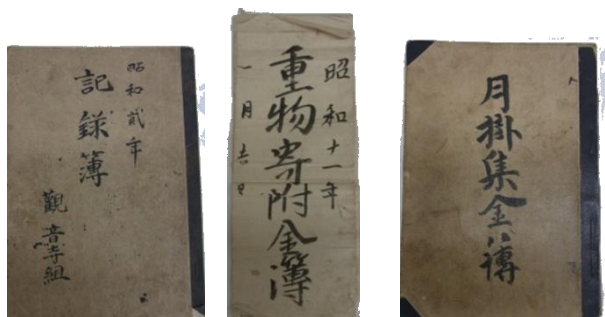 昭和貳年
記錄簿
觀音寺組
昭和十一年
重物寄附金簿
一月吉日
月掛集金簿